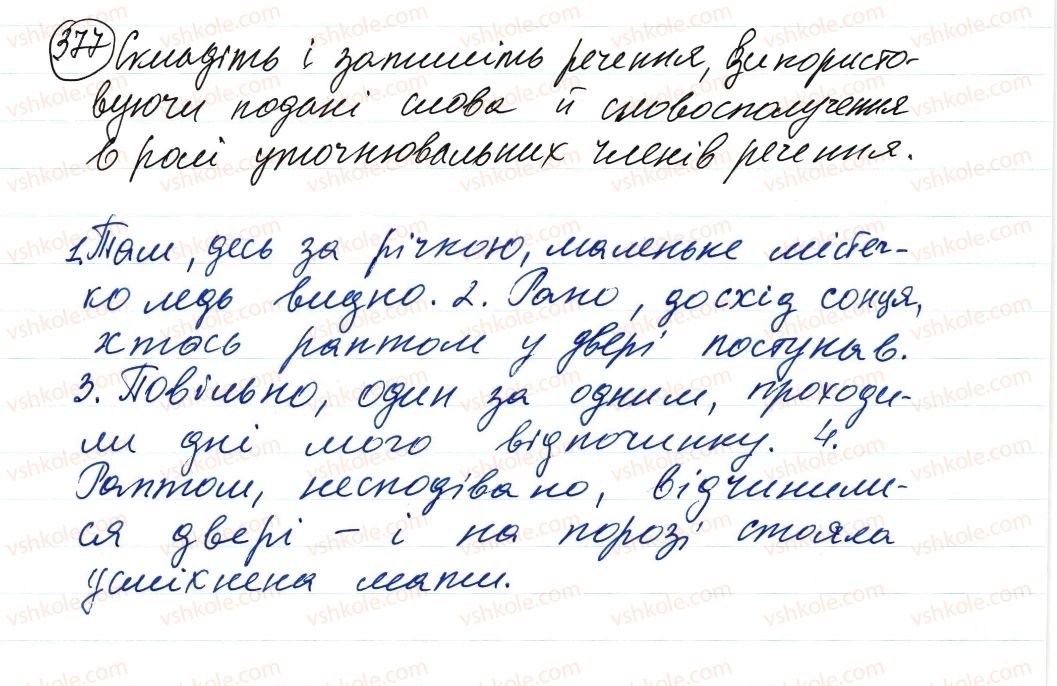 377 Складіть і запишіть речення, використо-
вуючи подані слова й словосполучення
в ролі уточнювальних членів речення.
1. Там, десь за річкою, маленьке містеч-
ко ледь видно. 2. Рано, досхід сонця,
хтось раптом у двері постукав.
3. Повільно, один за одним, проходи-
ли дні мого відпочинку. 4.
Раптом, несподівано, відчинили-
ся двері – і на порозі стояла
усміхнена мати.
vshkole.com